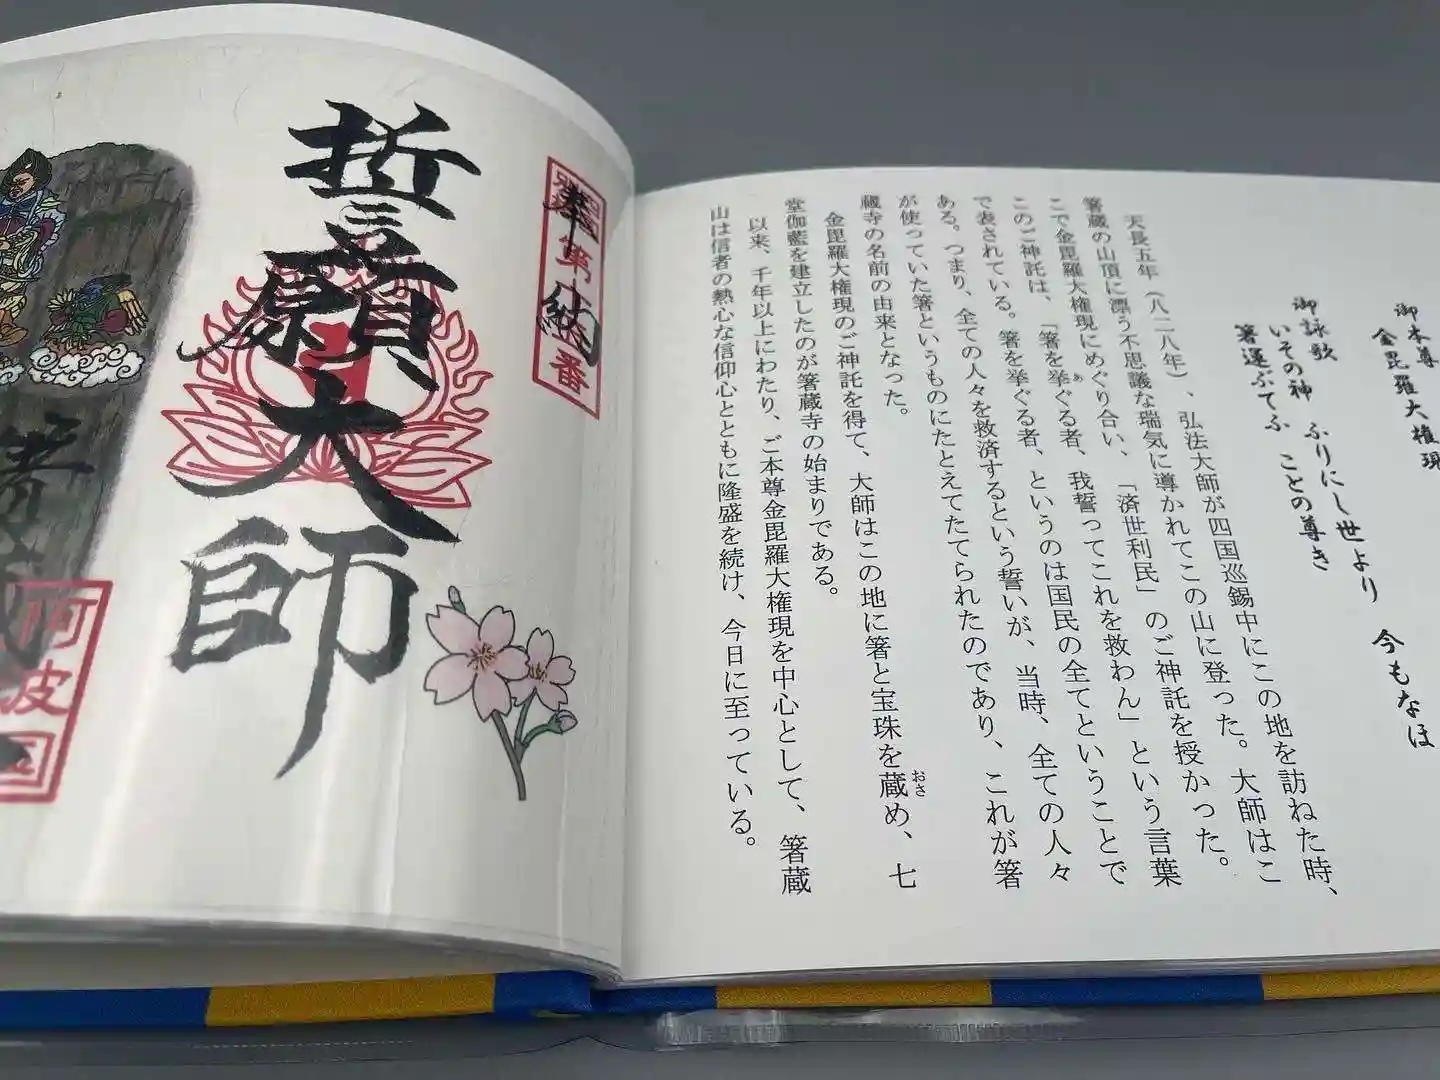 御本尊
金毘羅大権現
御詠歌
いその神 ふりにし世より 今もなほ
箸運ぶてふ ことの尊き
天長五年(八二八年)、弘法大師が四国巡錫中にこの地を訪ねた時、
箸蔵の山頂に漂う不思議な瑞気に導かれてこの山に登った。大師はこ
こで金毘羅大権現にめぐり合い、「済世利民」のご神託を授かった。
このご神託は、「箸を挙ぐる者、我誓ってこれを救わん」という言葉
で表されている。箸を挙ぐる者、というのは国民の全てということで
ある。つまり、全ての人々を救済するという誓いが、当時、全ての人々
が使っていた箸というものにたとえてたてられたのであり、これが箸
蔵寺の名前の由来となった。
金毘羅大権現のご神託を得て、大師はこの地に箸と宝珠を蔵め、七
堂伽藍を建立したのが箸蔵寺の始まりである。
以来、千年以上にわたり、ご本尊金毘羅大権現を中心として、箸蔵
山は信者の熱心な信仰心とともに隆盛を続け、今日に至っている。
奉納
誓願大師
阿波国